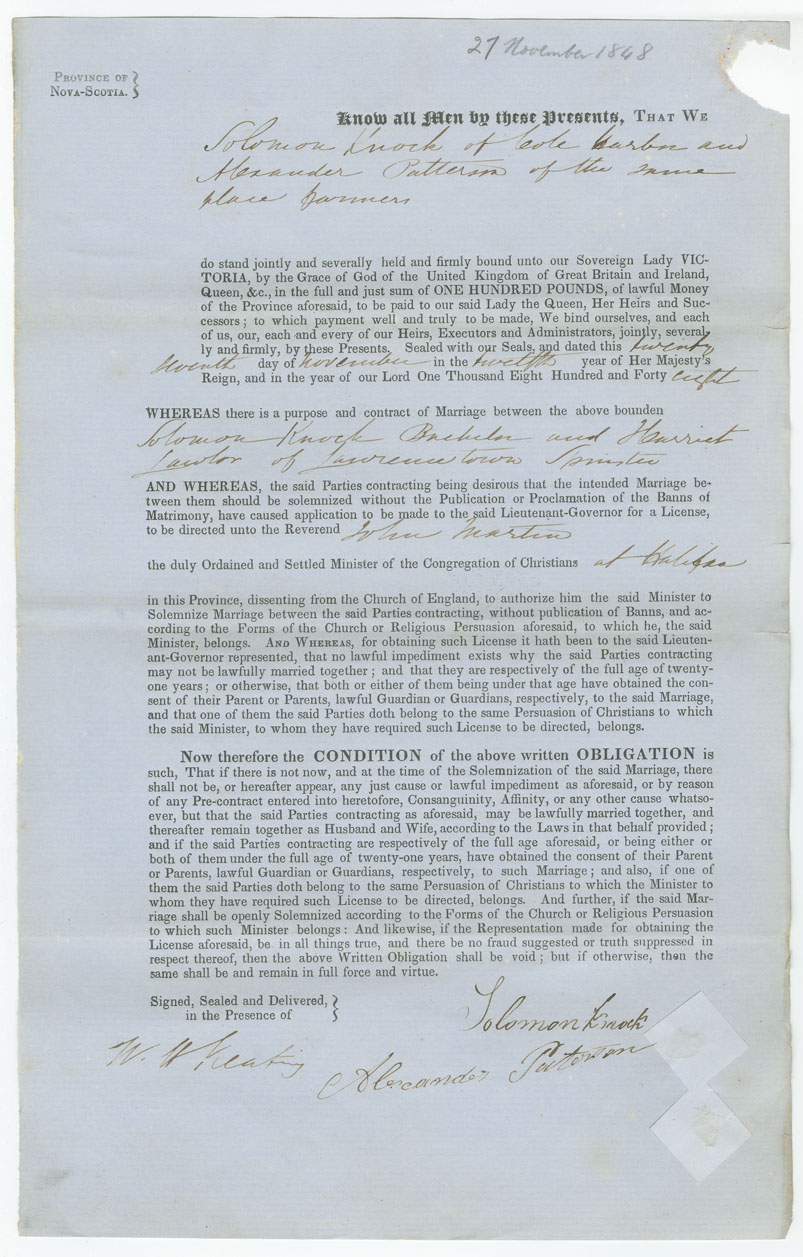 27 November 1848
Province of
Nova-Scotia.
Know all Men by these Presents, That We
Solomon Knock of Cole harbor and
Alexander Patterson of the same
place farmers
do stand jointly and severally held and firmly bound unto our Sovereign Lady VIC-
TORIA, by the Grace of God of the United Kingdom of Great Britain and Ireland,
Queen, &c., in the full and just sum of ONE HUNDRED POUNDS, of lawful Money
of the Province aforesaid, to be paid to our said Lady the Queen, Her Heirs and Suc-
cessors; to which payment well and truly to be made, We bind ourselves, and each
of us, our, each and every of our Heirs, Executors and Administrators, jointly, several-
ly and firmly, by these Presents. Sealed with our Seals, and dated this twenty
seventh day of November in the twelfth year of Her Majesty's
Reign, and in the year of our Lord One Thousand Eight Hundred and Forty eight
WHEREAS there is a purpose and contract of Marriage between the above bounden
Solomon Knock Bachelor and Harriet
Lawlor of Lawrencetown Spinster
AND WHEREAS, the said Parties contracting being desirous that the intended Marriage be-
tween them should be solemnized without the Publication or Proclamation of the Banns of
Matrimony, have caused application to be made to the said Lieutenant-Governor for a License,
to be directed unto the Reverend John Martin
the duly Ordained and Settled Minister of the Congregation of Christians at Halifax
in this Province, dissenting from the Church of England, to authorize him the said Minister to
Solemnize Marriage between the said Parties contracting, without publication of Banns, and ac-
cording to the Forms of the Church or Religious Persuasion aforesaid, to which he, the said
Minister, belongs. And Whereas, for obtaining such License it hath been to the said Lieuten-
ant-Governor represented, that no lawful impediment exists why the said Parties contracting
may not be lawfully married together; and that they are respectively of the full age of twenty-
one years; or otherwise, that both or either of them being under that age have obtained the con-
sent of their Parent or Parents, lawful Guardian or Guardians, respectively, to the said Marriage,
and that one of them the said Parties doth belong to the same Persuasion of Christians to which
the said Minister, to whom they have required such License to be directed, belongs.
Now therefore the CONDITION of the above written OBLIGATION is
such, That if there is not now, and at the time of the Solemnization of the said Marriage, there
shall not be, or hereafter appear, any just cause or lawful impediment as aforesaid, or by reason
of any Pre-contract entered into heretofore, Consanguinity, Affinity, or any other cause whatso-
ever, but that the said Parties contracting as aforesaid, may be lawfully married together, and
thereafter remain together as Husband and Wife, according to the Laws in that behalf provided;
and if the said Parties contracting are respectively of the full age aforesaid, or being either or
both of them under the full age of twenty-one years, have obtained the consent of their Parent
or Parents, lawful Guardian or Guardians, respectively, to such Marriage; and also, if one of
them the said Parties doth belong to the same Persuasion of Christians to which the Minister to
whom they have required such License to be directed, belongs. And further, if the said Mar-
riage shall be openly Solemnized according to the Forms of the Church or Religious Persuasion
to which such Minister belongs: And likewise, if the Representation made for obtaining the
License aforesaid, be in all things true, and there be no fraud suggested or truth suppressed in
respect thereof, then the above Written Obligation shall be void; but if otherwise, then the
same shall be and remain in full force and virtue.
Signed, Sealed and Delivered,
in the Presence of
Solomon Knock
W. H Keating
Alexander Paterson